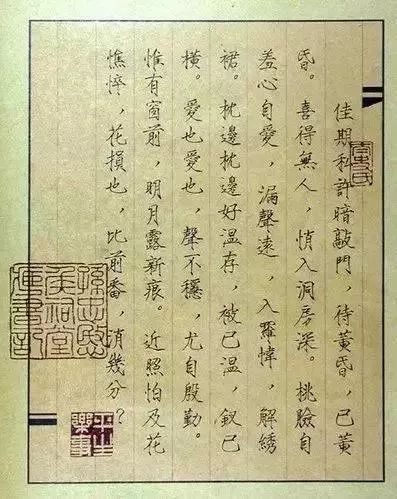 佳期私許暗敲門，待黃昏，已黃
昏。喜得無人，悄入洞房深。桃臉自
羞心自愛，漏聲遠，入羅幃，解綉
裙。枕邊枕邊好溫存，被已溫，釵已
橫。愛也愛也，聲不穩，尤自殷勤。
惟有窗前，明月露新痕。近照怕及花
憔悴，花損也，比前番，消幾分？
平生
樂事